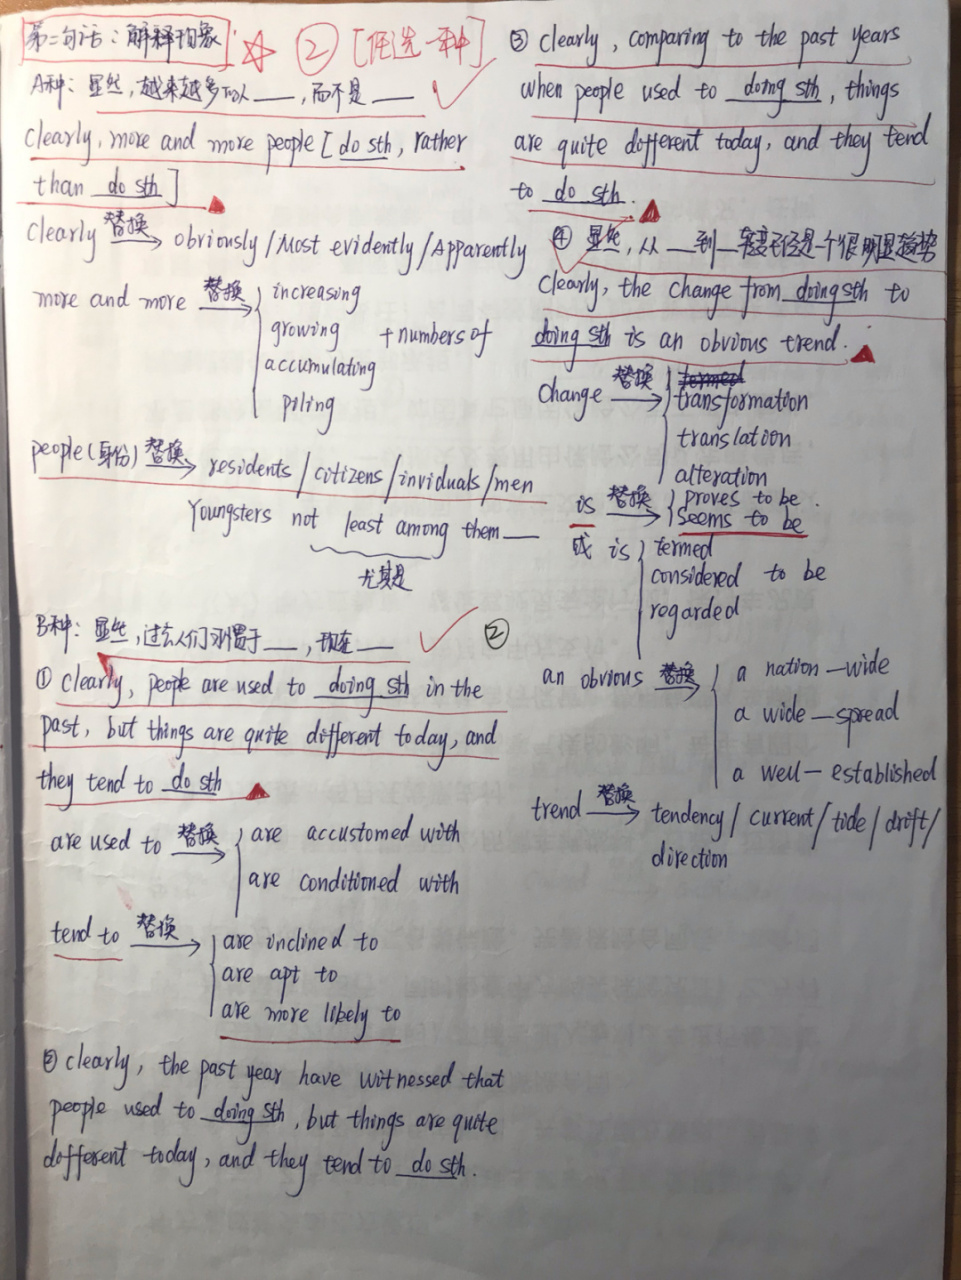 第二句话：解释现象 ② [任选一种]
A种：显然，越来越多的人 ___，而不是 ___
clearly, more and more people [ do sth, rather
than do sth ]
clearly 替换 → obviously / Most evidently / Apparently
more and more 替换 → increasing
growing + numbers of
accumulating
piling
people (身份) 替换 → residents / citizens / inviduals / men
Youngsters not least among them ___
尤其是
B种：显然，过去人们习惯于 ___，现在 ___ ②
① clearly, people are used to doing sth in the
past, but things are quite different today, and
they tend to do sth
are used to 替换 → are accustomed with
are conditioned with
tend to 替换 → are inclined to
are apt to
are more likely to
② clearly, the past year have witnessed that
people used to doing sth, but things are quite
different today, and they tend to do sth.
③ clearly, comparing to the past years
when people used to doing sth, things
are quite different today, and they tend
to do sth.
④ 显然，从 ___ 到 ___ 转变 是一个很明显趋势
Clearly, the change from doing sth to
doing sth is an obvious trend.
Change 替换 → termed
transformation
translation
alteration
is 替换 → proves to be.
seems to be
或 is termed
considered to be
regarded
an obvious 替换 → a nation-wide
a wide-spread
a well-established
trend 替换 → tendency / current / tide / drift /
direction